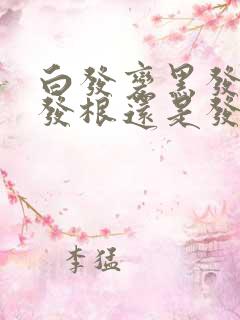 白發變黑發
發根還是發
李猛